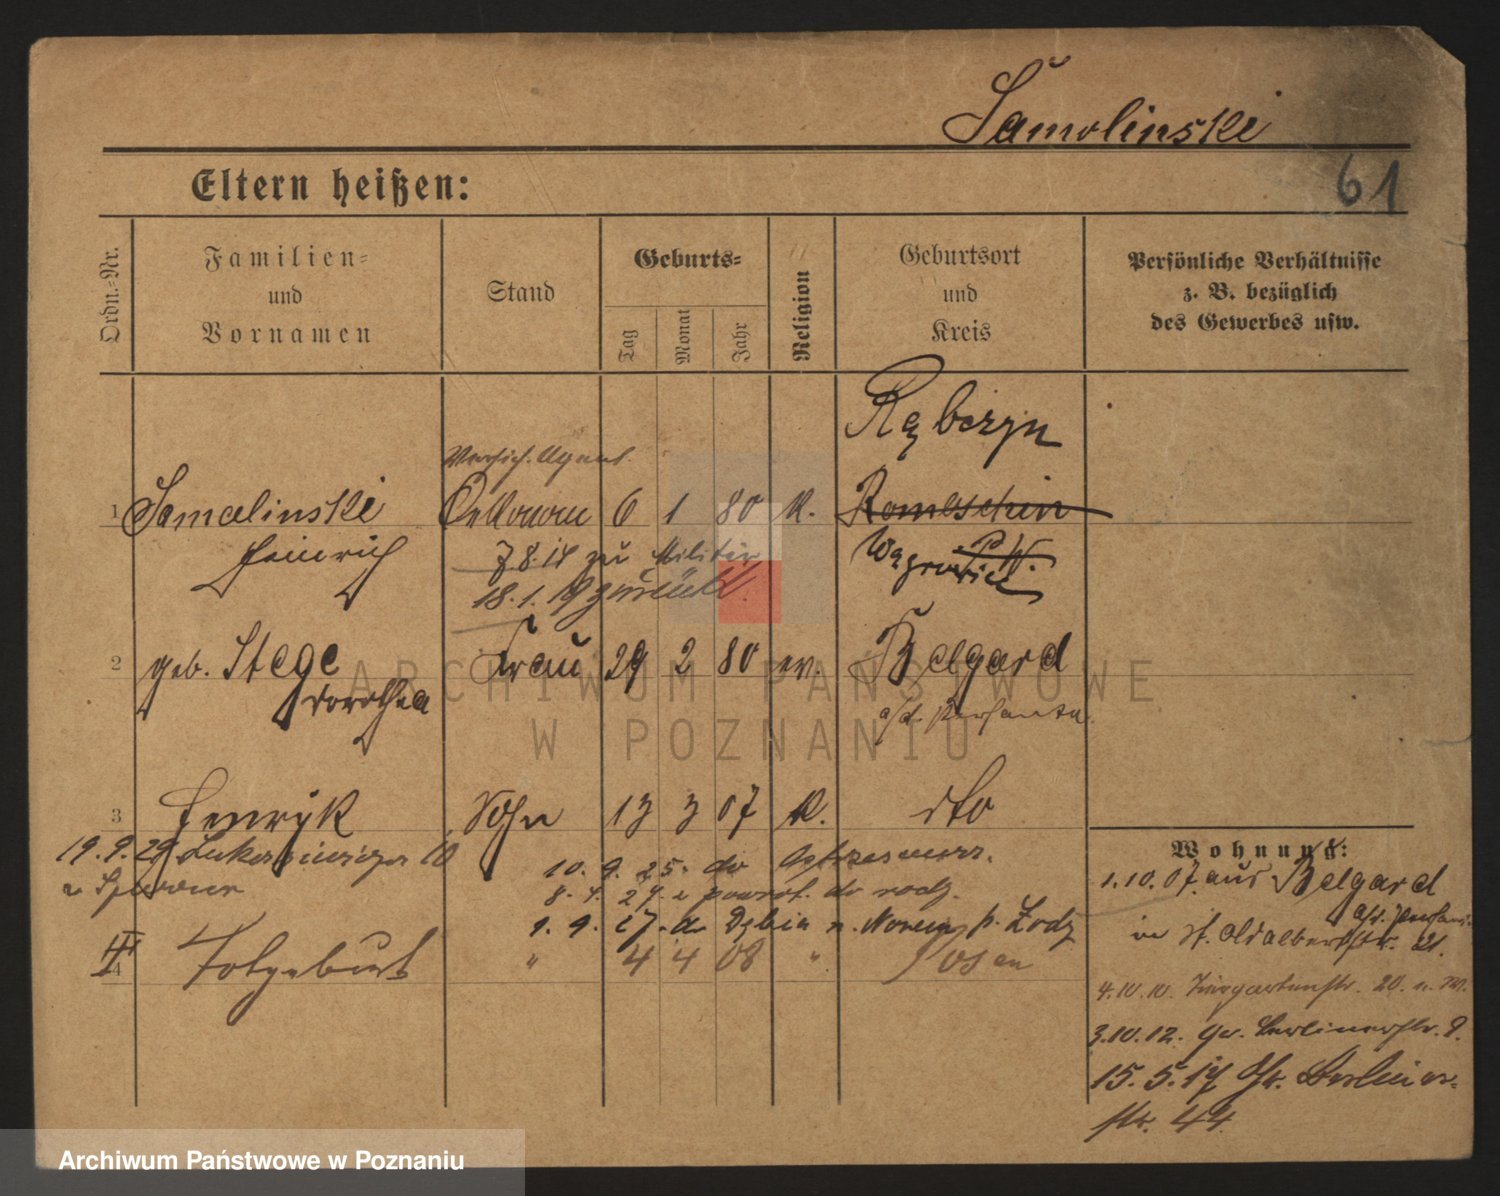 Samolinski
61
Eltern heißen:
Ordn.-Nr.
Familien-
und
Vornamen
Stand
Geburts-
Tag
Monat
Jahr
Religion
Geburtsort
und
Kreis
Persönliche Verhältnisse
z. B. bezüglich
des Gewerbes usw.
Rąbczyn
Versich. Agent.
1 Samolinski Oekonom 6 1 80 K. Rombschin
Heinrich 7.8.14 zu Militär Wągrowiec
18.1.19 zurück.
2 geb. Stege Frau 29 2 80 ev. Belgard
Dorothea a/d. Persante
3 Henryk Sohn 13 3 07 K. dto
19.9.29 10
10.9.25. do
8.7.27. z powrot. do rodz.
1.9.27. do Dębia
4 Totgeburt " 4 4 08 " Posen
Wohnung:
1.10.07. aus Belgard
a/d. Persante
in St. Adalbertstr. 21.
4.10.10. Tiergartenstr. 20.
3.10.12. Gr. Berlinerstr. 9.
15.5.17 Gr. Berliner-
str. 44
ARCHIWUM PAŃSTWOWE
W POZNANIU
Archiwum Państwowe w Poznaniu